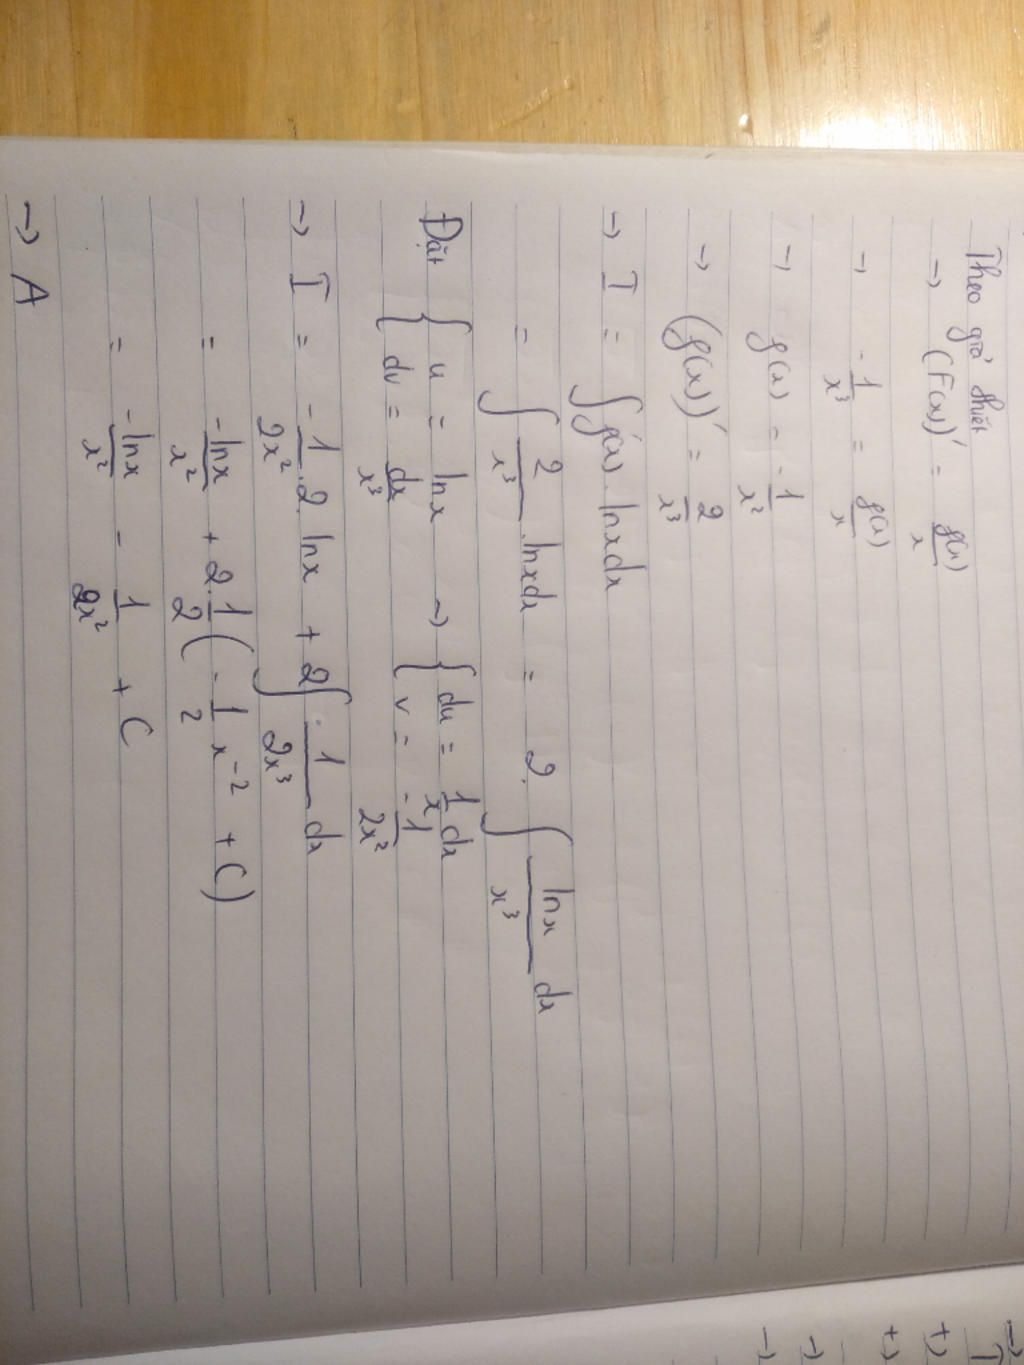 Theo giả thiết
→ (F(x))' = f(x)/x
→ -1/x³ = f(x)/x
→ f(x) = -1/x²
→ (f(x))' = 2/x³
→ I = ∫ f'(x) . lnxdx
= ∫ 2/x³ . lnxdx = 2. ∫ lnx/x³ dx
Đặt { u = lnx → { du = 1/x dx
{ dv = dx/x³ { v = -1/2x²
→ I = -1/2x² . 2 lnx + 2∫ 1/2x³ dx
= -lnx/x² + 2. 1/2 ( -1/2 x⁻² + C)
= -lnx/x² - 1/2x² + C
→ A